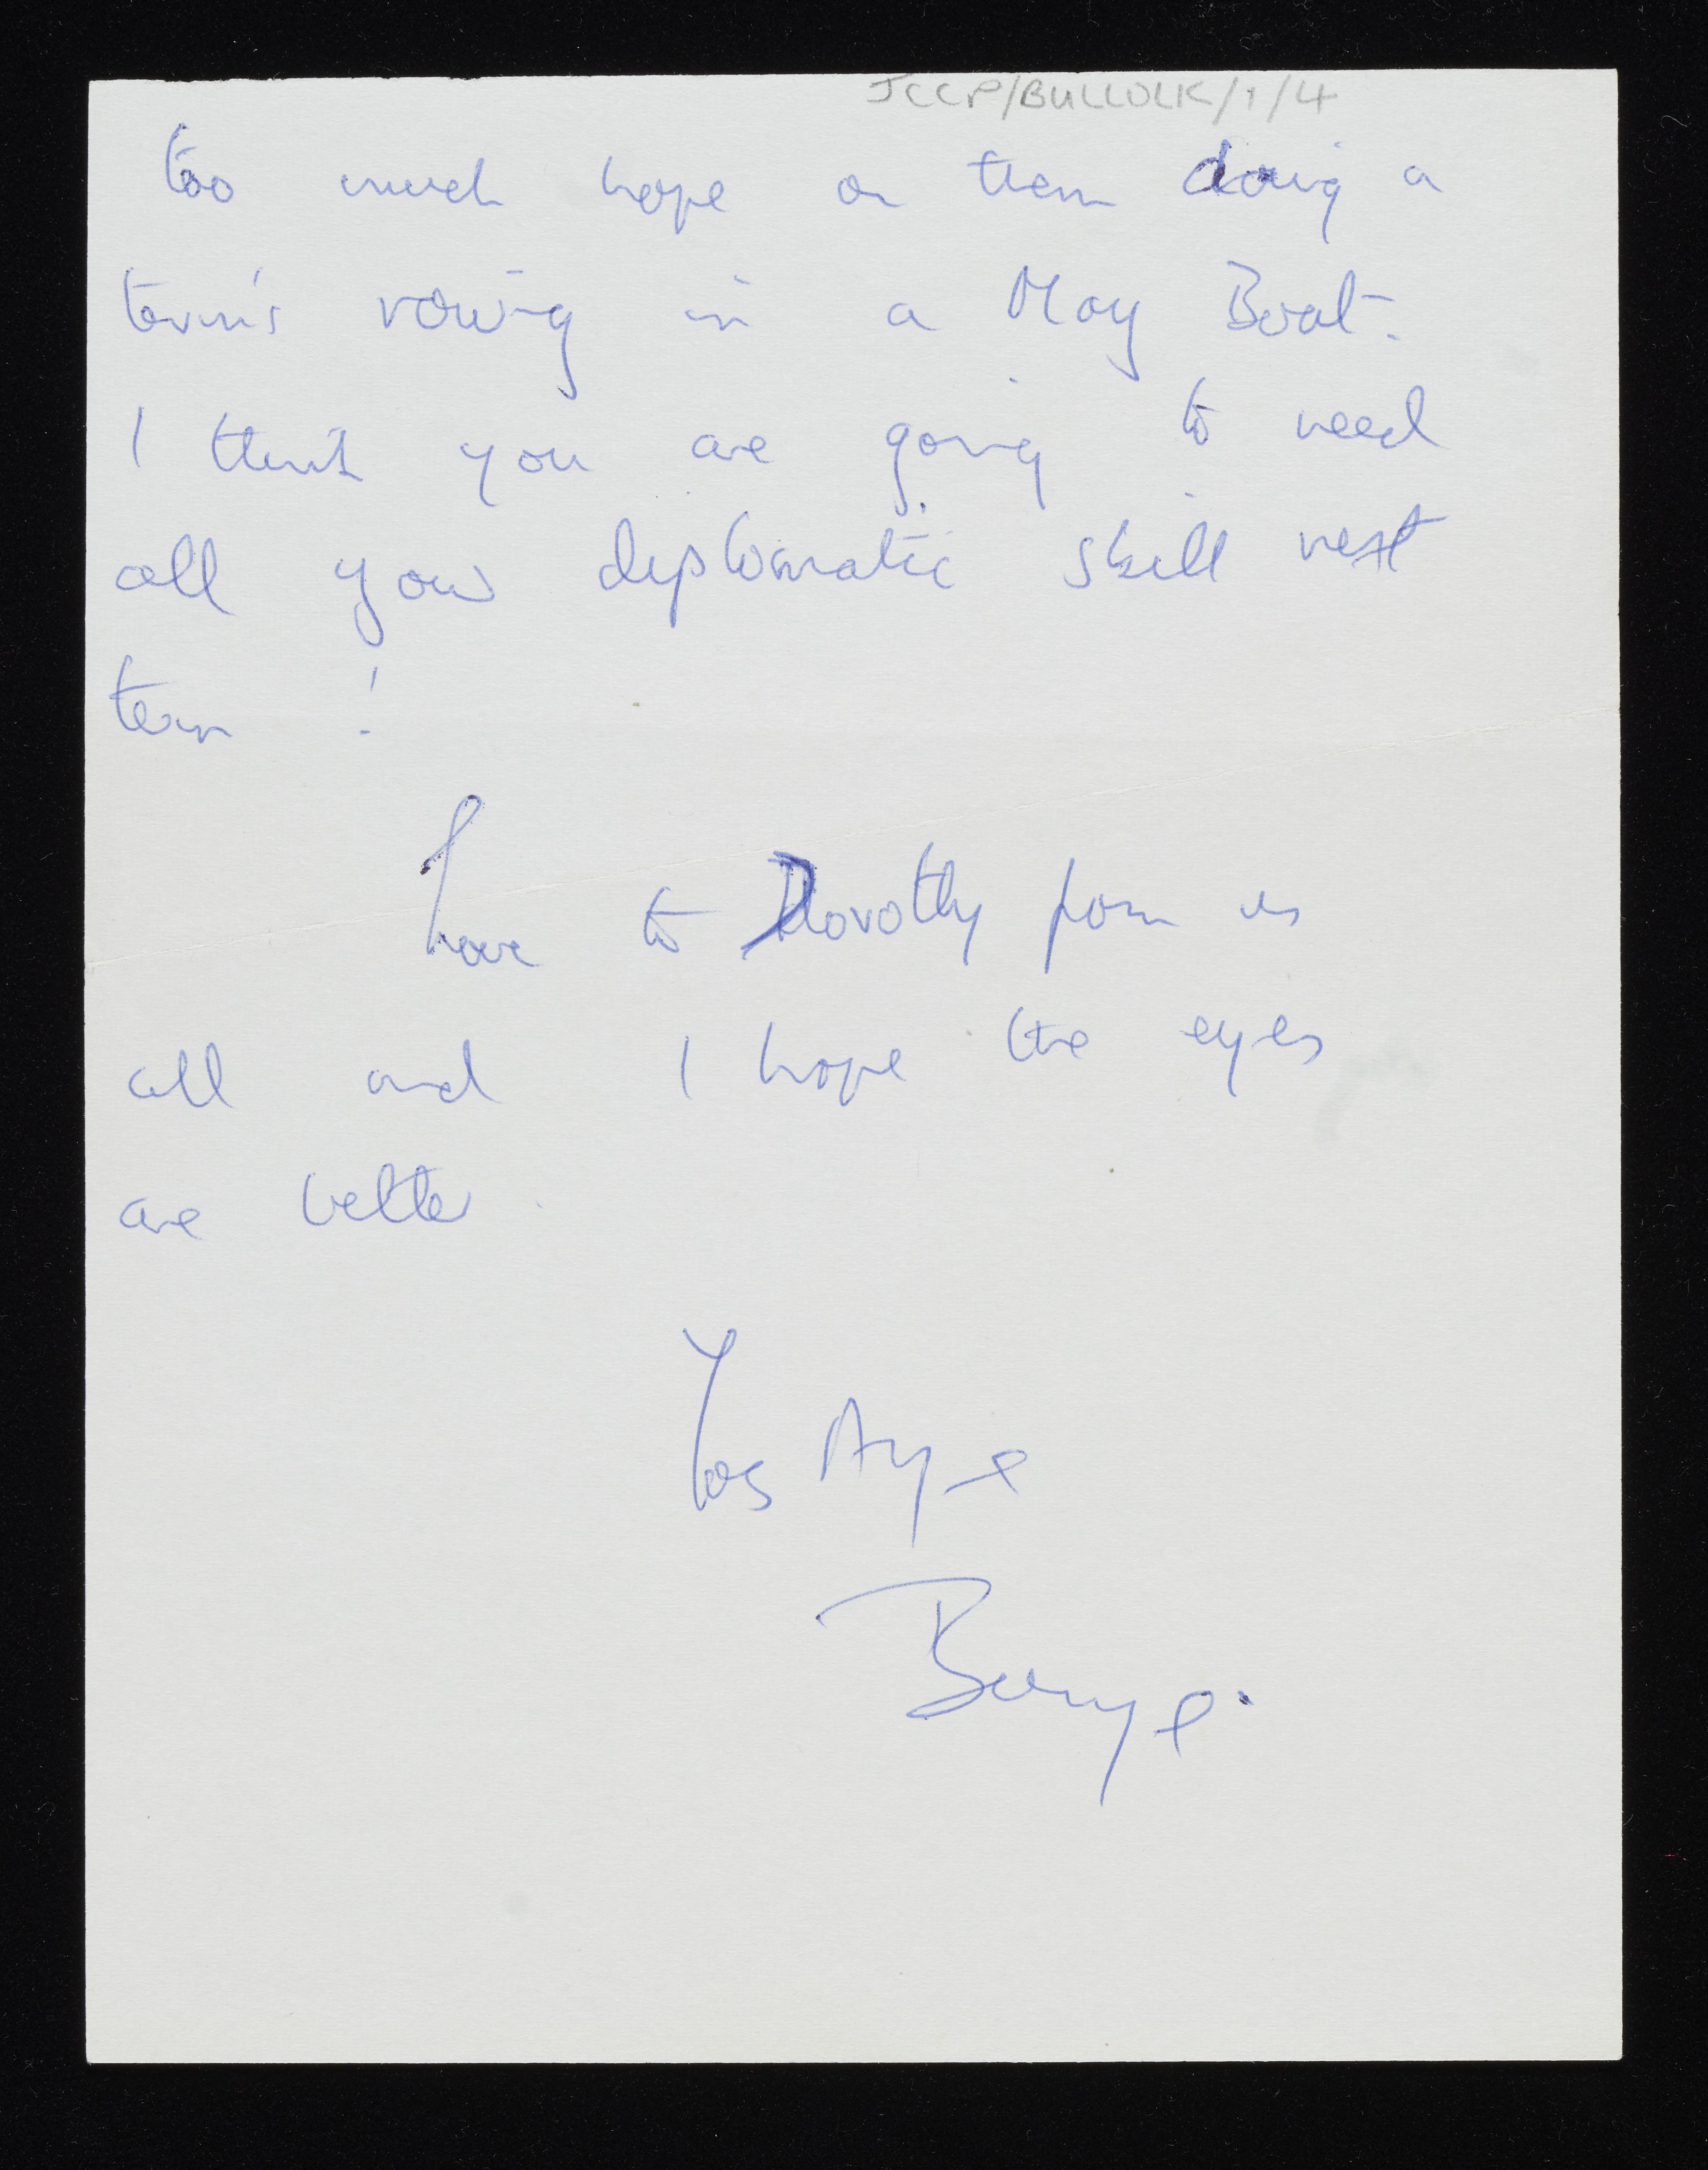 JCCP/BULLOCK/1/4
too much hope on them doing a
term's rowing in a May Boat.
I think you are going to need
all your diplomatic skill next
term !
Love to Dorothy from us
all and I hope the eyes
are better.
Yrs Aye